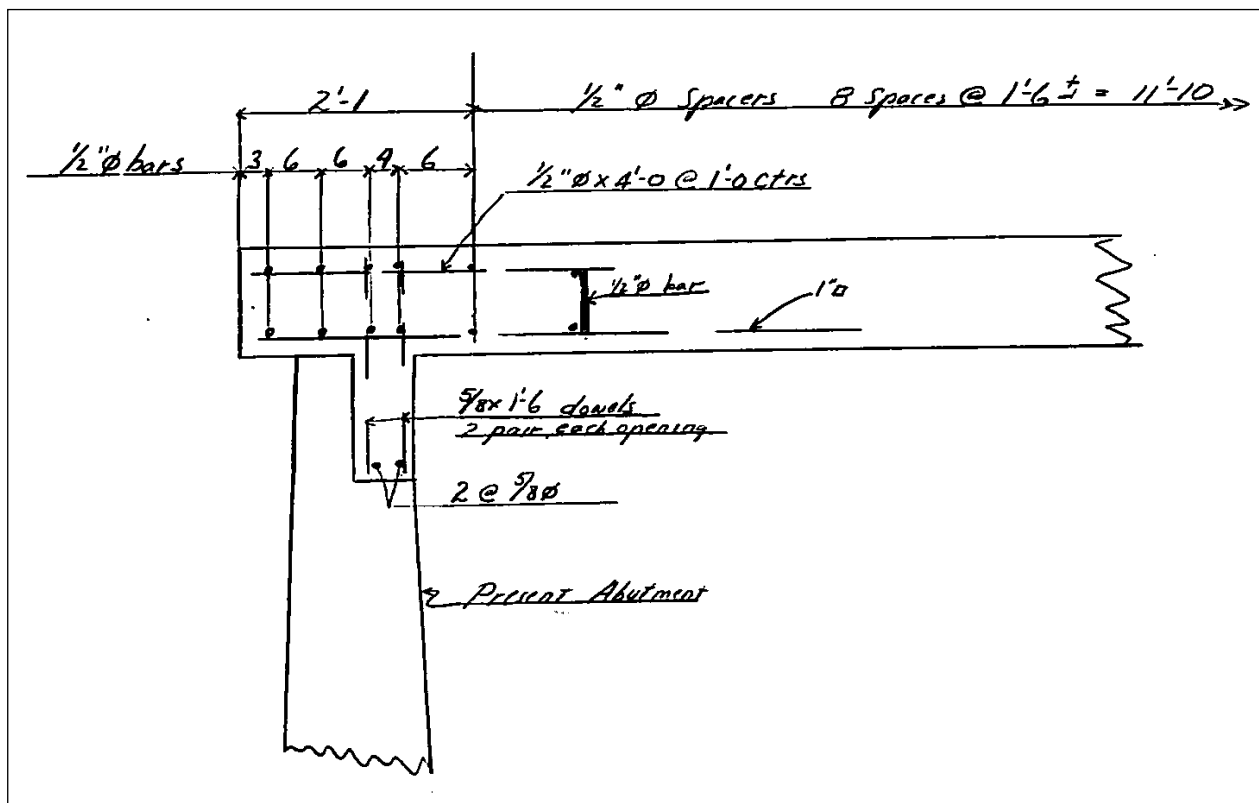 2'-1
1/2" Ø Spacers 8 Spaces @ 1'-6 ± = 11'-10
1/2" Ø bars
3 6 6 4 6
1/2" Ø x 4'-0 @ 1'-0 ctrs
1/2" Ø bar
1"□
5/8 x 1'-6 dowels
2 pair each opening
2 @ 5/8 Ø
Present Abutment